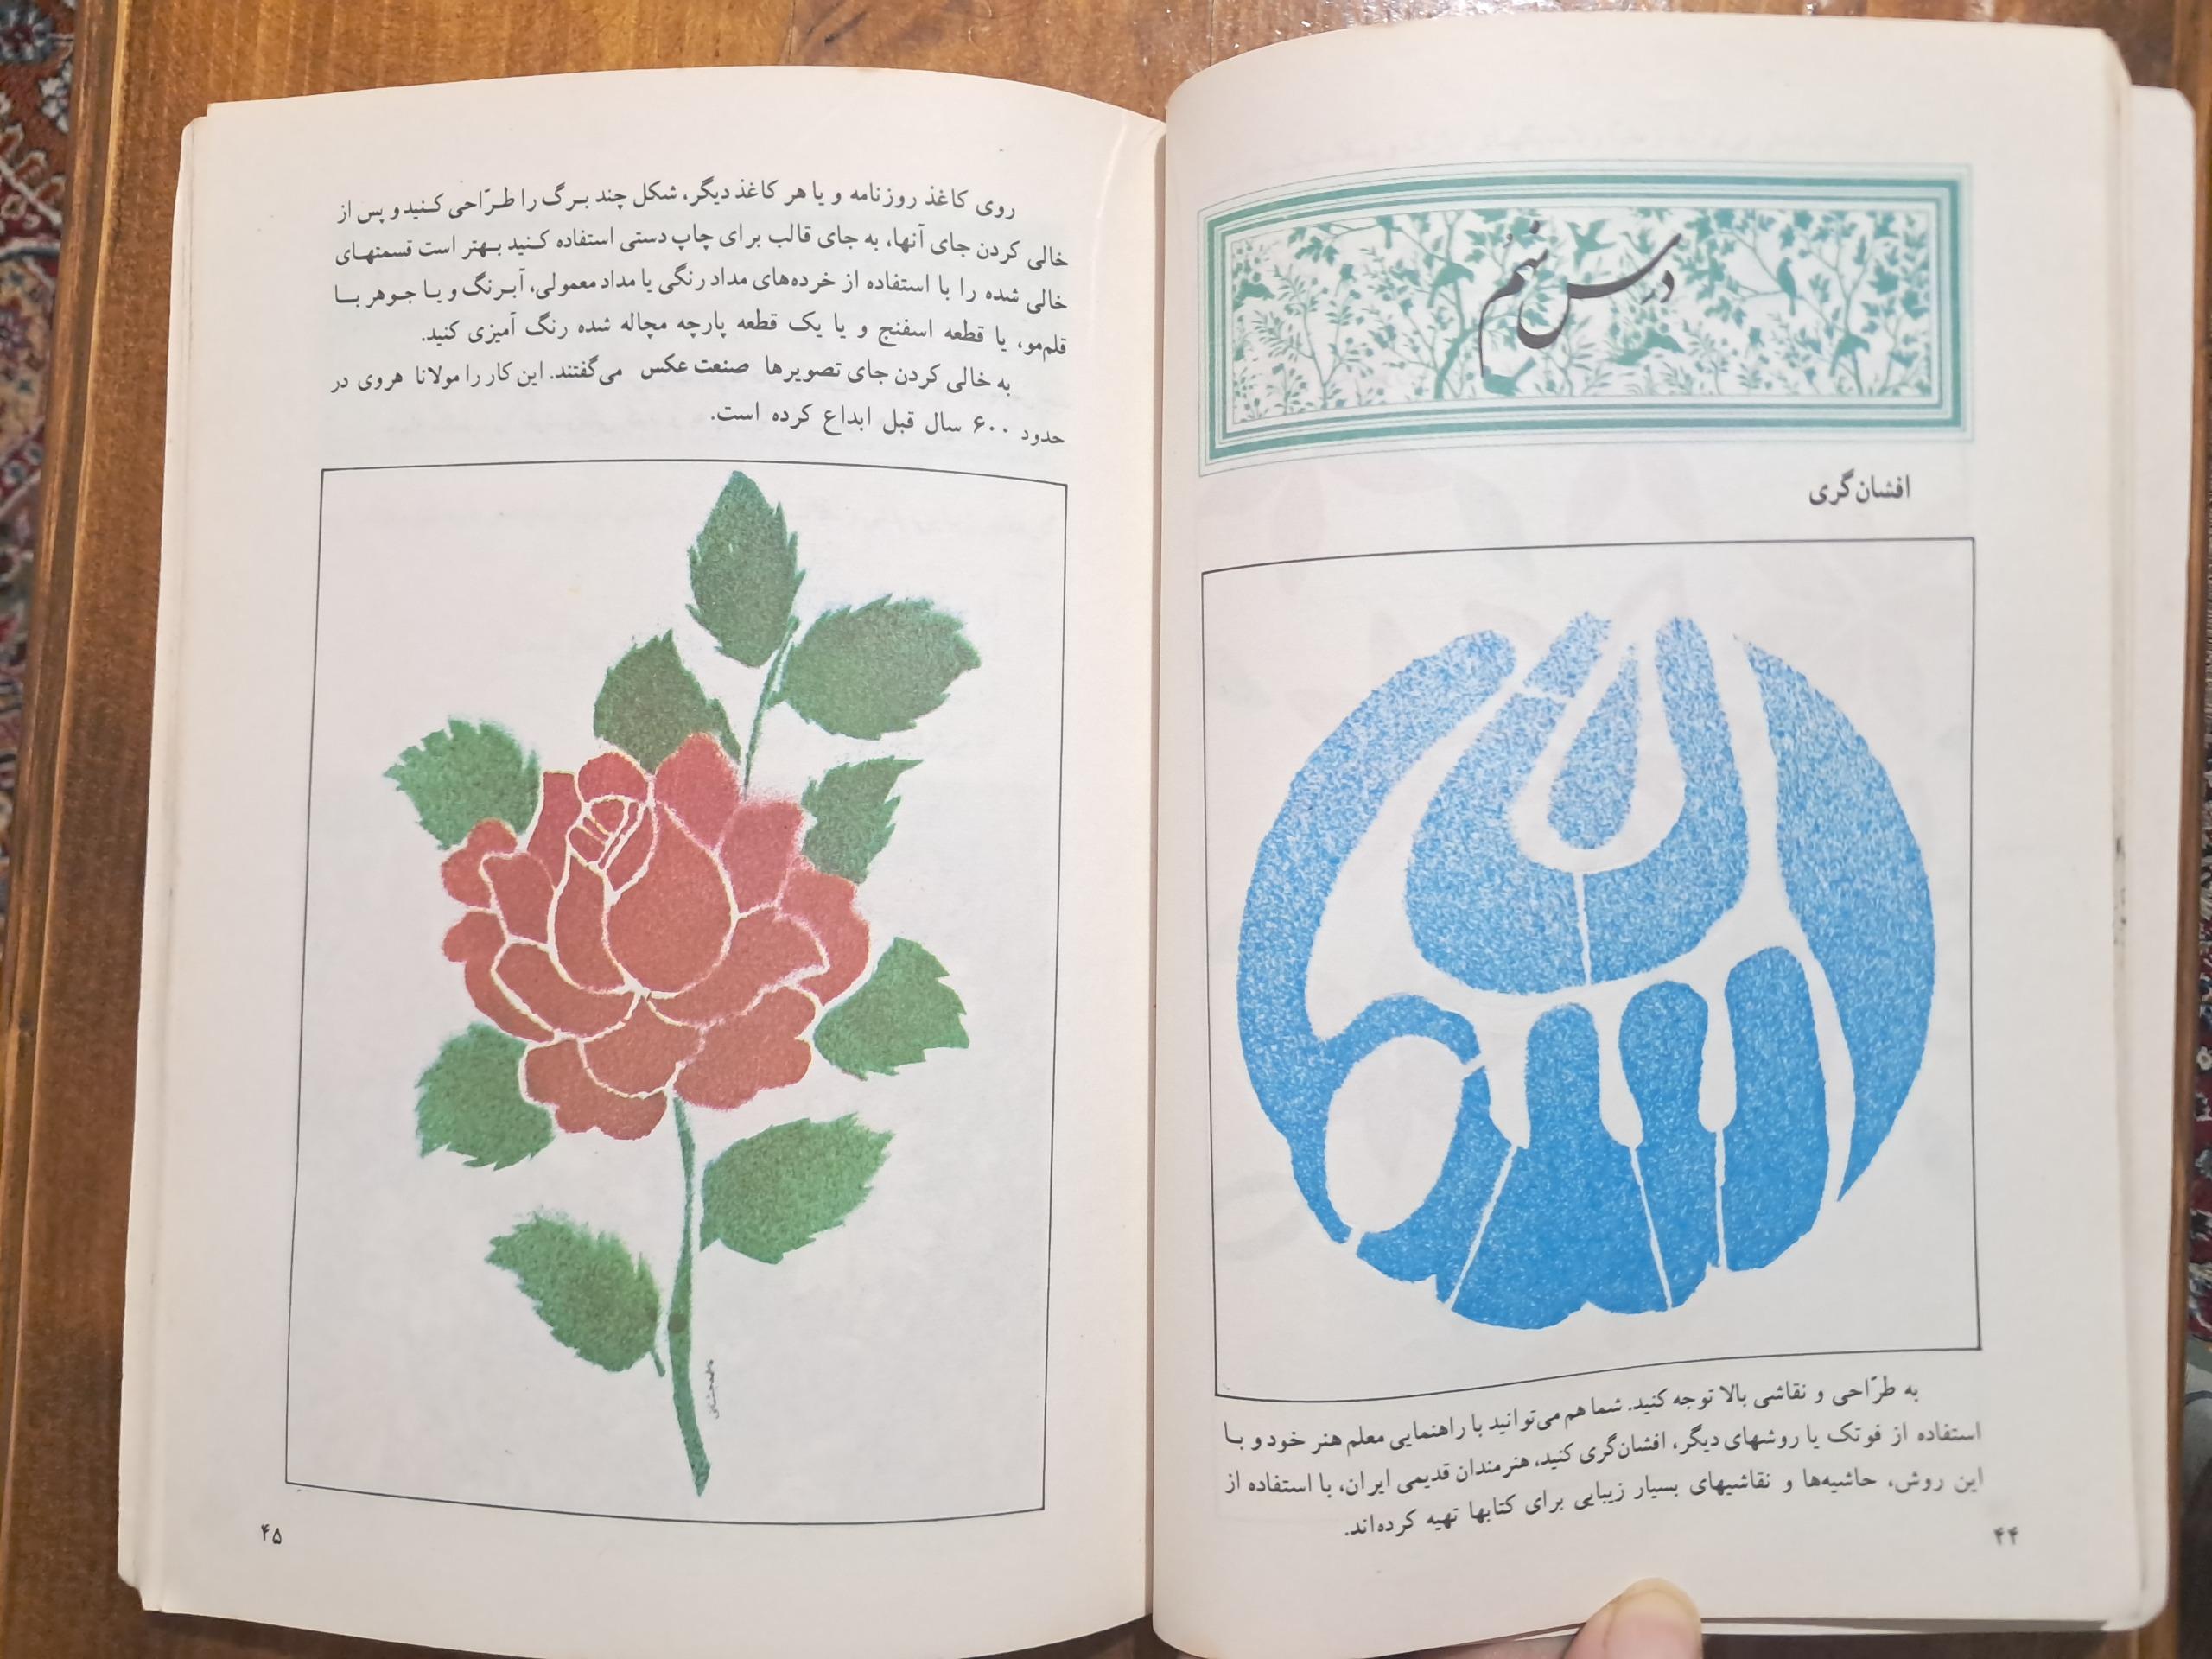 درس نهم
افشان‌گری
الله
به طرّاحی و نقاشی بالا توجه کنید. شما هم می‌توانید با راهنمایی معلم هنر خود و بـا
استفاده از فوتک یا روشهای دیگر، افشان‌گری کنید، هنرمندان قدیمی ایران، با استفاده از
این روش، حاشیه‌ها و نقاشیهای بسیار زیبایی برای کتابها تهیه کرده‌اند.
۴۴
روی کاغذ روزنامه و یا هر کاغذ دیگر، شکل چند بـرگ را طـرّاحی کـنید و پس از
خالی کردن جای آنها، به جای قالب برای چاپ دستی استفاده کـنید بـهتر است قسمتهـای
خالی شده را با استفاده از خرده‌های مداد رنگی یا مداد معمولی، آبـرنگ و یـا جـوهر بـا
قلم‌مو، یا قطعه اسفنج و یا یک قطعه پارچه مچاله شده رنگ آمیزی کنید.
به خالی کردن جای تصویرها صنعت عکس می‌گفتند. این کار را مولانا هروی در
حدود ۶۰۰ سال قبل ابداع کرده است.
۴۵